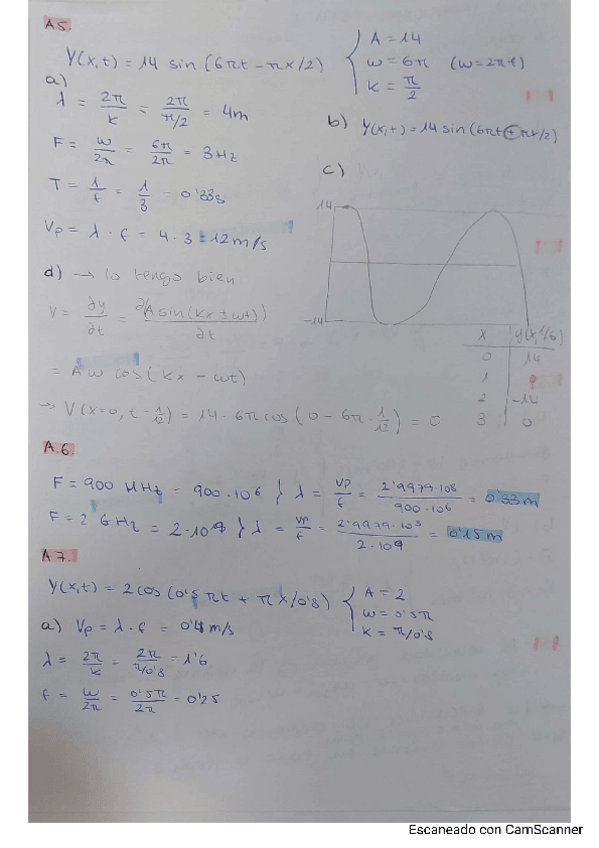 A5.
Y(x,t) = 14 sin (6πt - πx/2) { A = 14
w = 6π (w = 2πf)
k = π/2
a)
λ = 2π/k = 2π/π/2 = 4m
F = w/2π = 6π/2π = 3Hz
T = 1/f = 1/3 = 0'33s
Vp = λ · f = 4 · 3 = 12 m/s
b) Y(x,t) = 14 sin (6πt + πx/2)
c)
14
-14
x | y(x,1/6)
0 | 14
1 | 0
2 | -14
3 | 0
d) → lo tengo bien
V = ∂y/∂t = ∂(A sin(kx ± wt))/∂t
= A w cos(kx - wt)
→ V(x=0, t=1/12) = 14 · 6π cos (0 - 6π · 1/12) = 0
A.6.
F = 900 MHz = 900·10⁶ } λ = Vp/f = 2'9979·10⁸/900·10⁶ = 0'33m
F = 2 GHz = 2·10⁹ } λ = Vp/f = 2'9979·10⁸/2·10⁹ = 0'15m
A.7.
Y(x,t) = 2 cos (0'5πt + πx/0'8) { A = 2
w = 0'5π
k = π/0'8
a) Vp = λ · f = 0'4 m/s
λ = 2π/k = 2π/π/0'8 = 1'6
f = w/2π = 0'5π/2π = 0'25
Escaneado con CamScanner